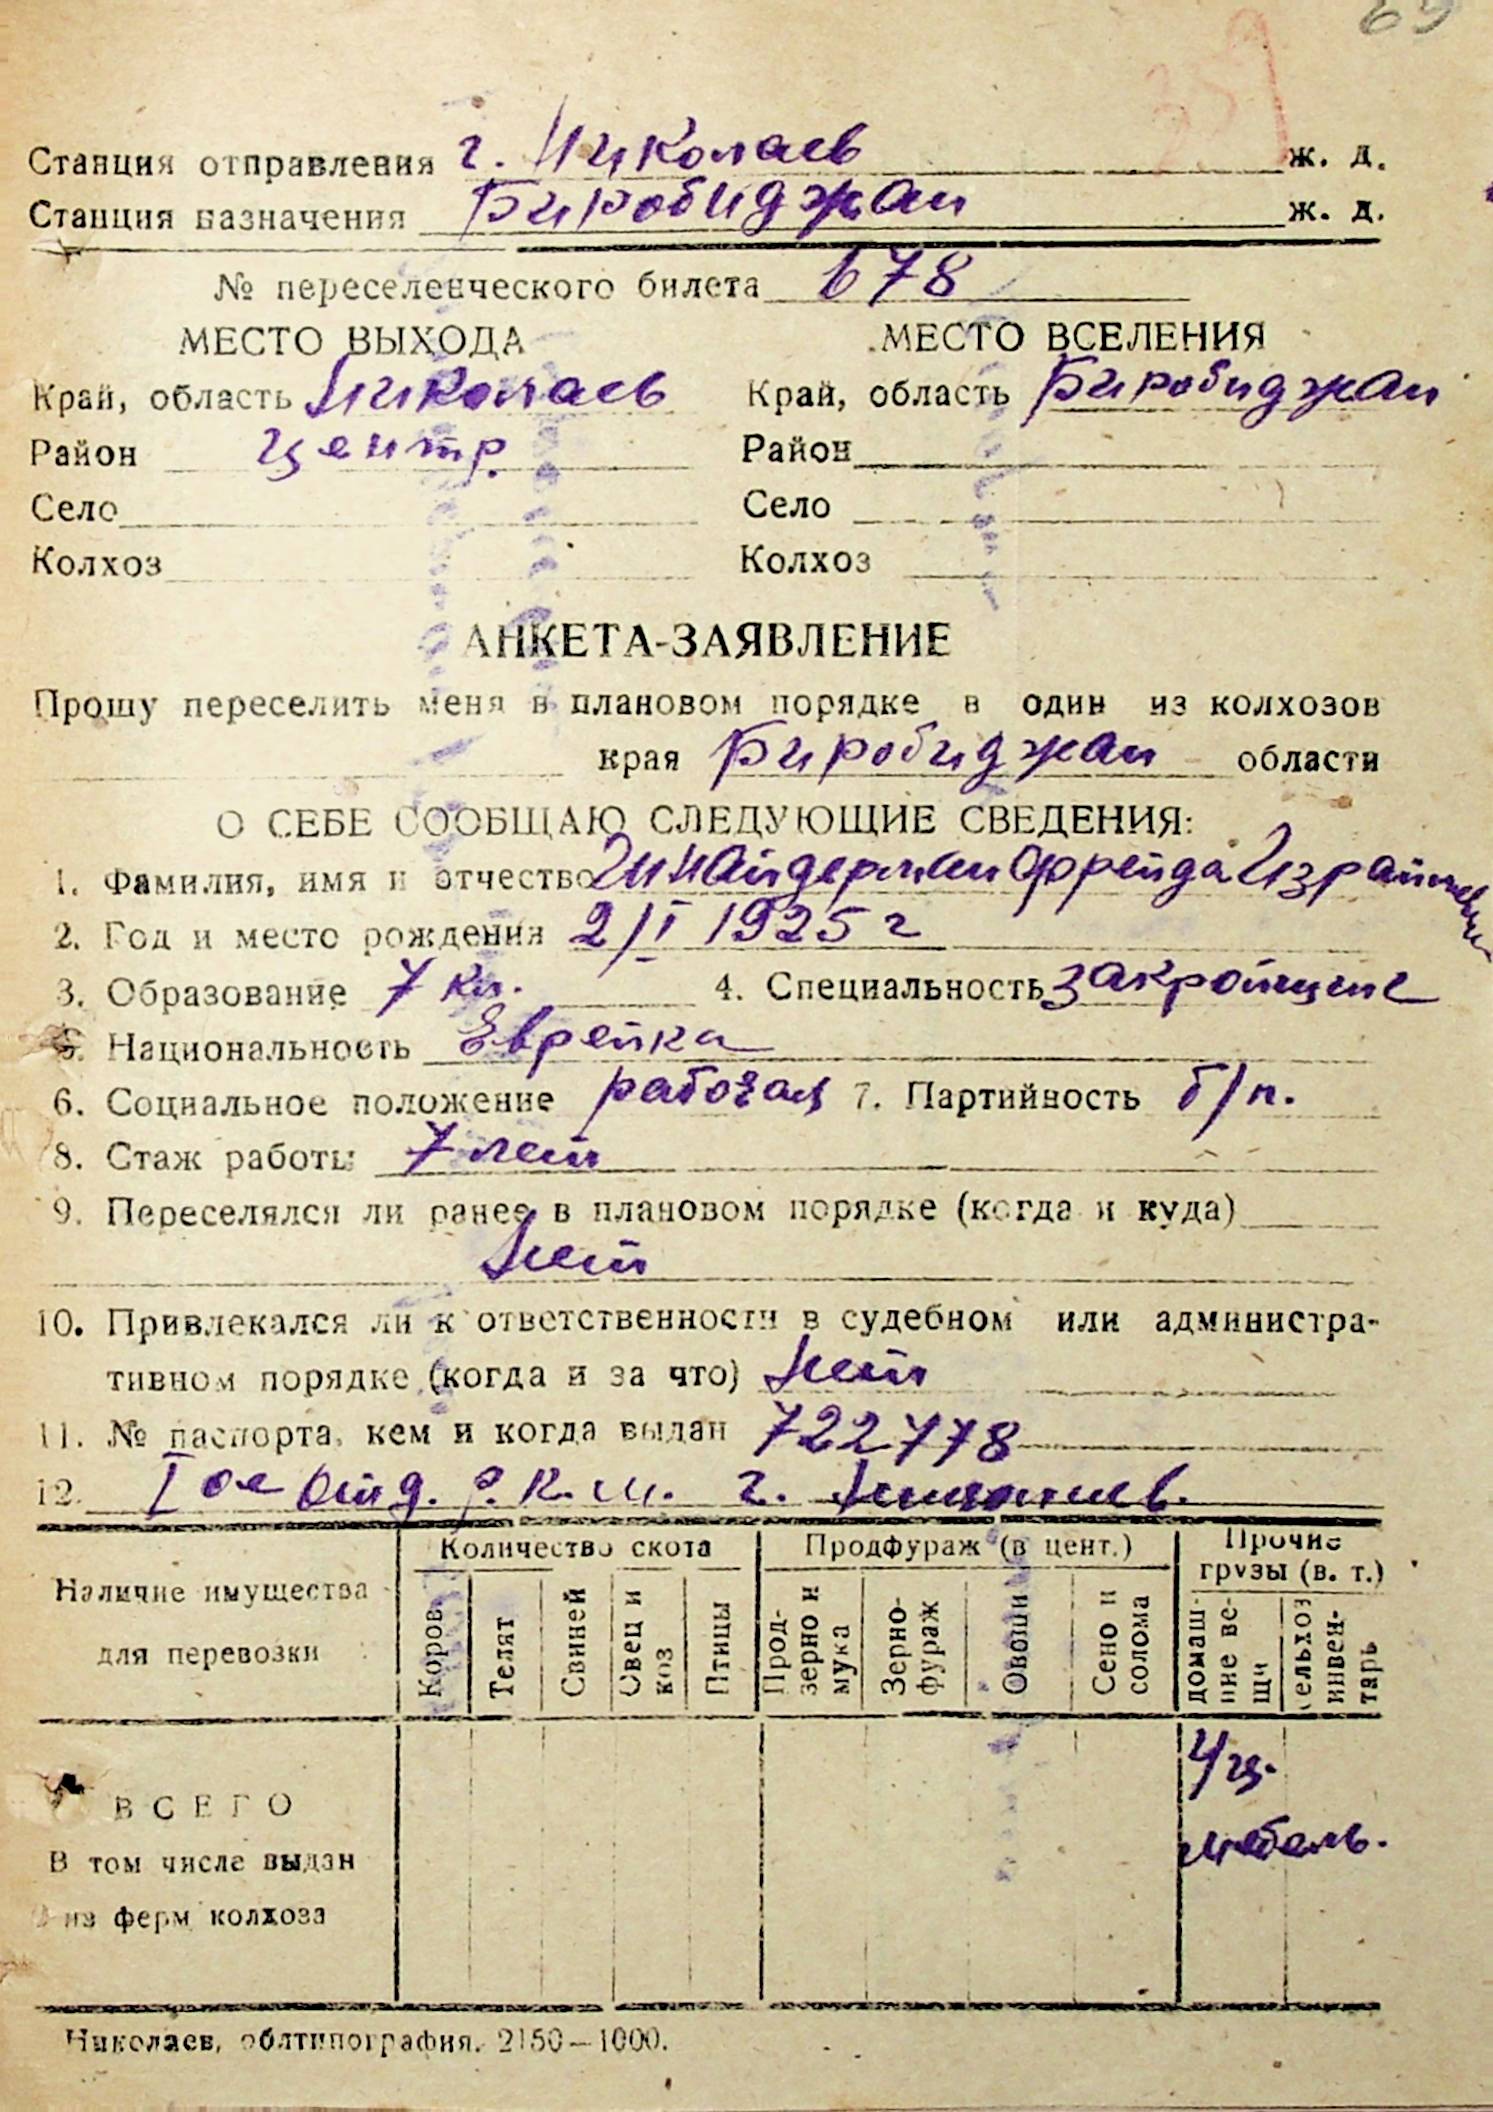 69
Станция отправления г. Николаев ж. д.
Станция назначения Биробиджан ж. д.
№ переселенческого билета 678
МЕСТО ВЫХОДА МЕСТО ВСЕЛЕНИЯ
Край, область Николаев Край, область Биробиджан
Район центр. Район
Село Село
Колхоз Колхоз
АНКЕТА-ЗАЯВЛЕНИЕ
Прошу переселить меня в плановом порядке в один из колхозов
края Биробиджан области
О СЕБЕ СООБЩАЮ СЛЕДУЮЩИЕ СВЕДЕНИЯ:
1. Фамилия, имя и отчество Шнайдерман Фрейда
2. Год и место рождения 2/I 1925 г
3. Образование 7 кл. 4. Специальность
5. Национальность Еврейка
6. Социальное положение рабочая 7. Партийность б/п.
8. Стаж работы 7 лет
9. Переселялся ли ранее в плановом порядке (когда и куда)
Нет
10. Привлекался ли к ответственности в судебном или администра-
тивном порядке (когда и за что) Нет
11. № паспорта, кем и когда выдан 722778
12. I ое отд. р.к.м. г. Николаев.
Наличие имущества для перевозки Количество скота Продфураж (в цент.) Прочие грузы (в. т.)
Коров Телят Свиней Овец и коз Птицы Прод-зерно и мука Зерно-фураж Овощи Сено и солома домаш-ние ве-щи сельхоз инвен-тарь
ВСЕГО 4/ц.
мебель.
В том числе выдан
из ферм колхоза
Николаев, облтипография. 2150—1000.